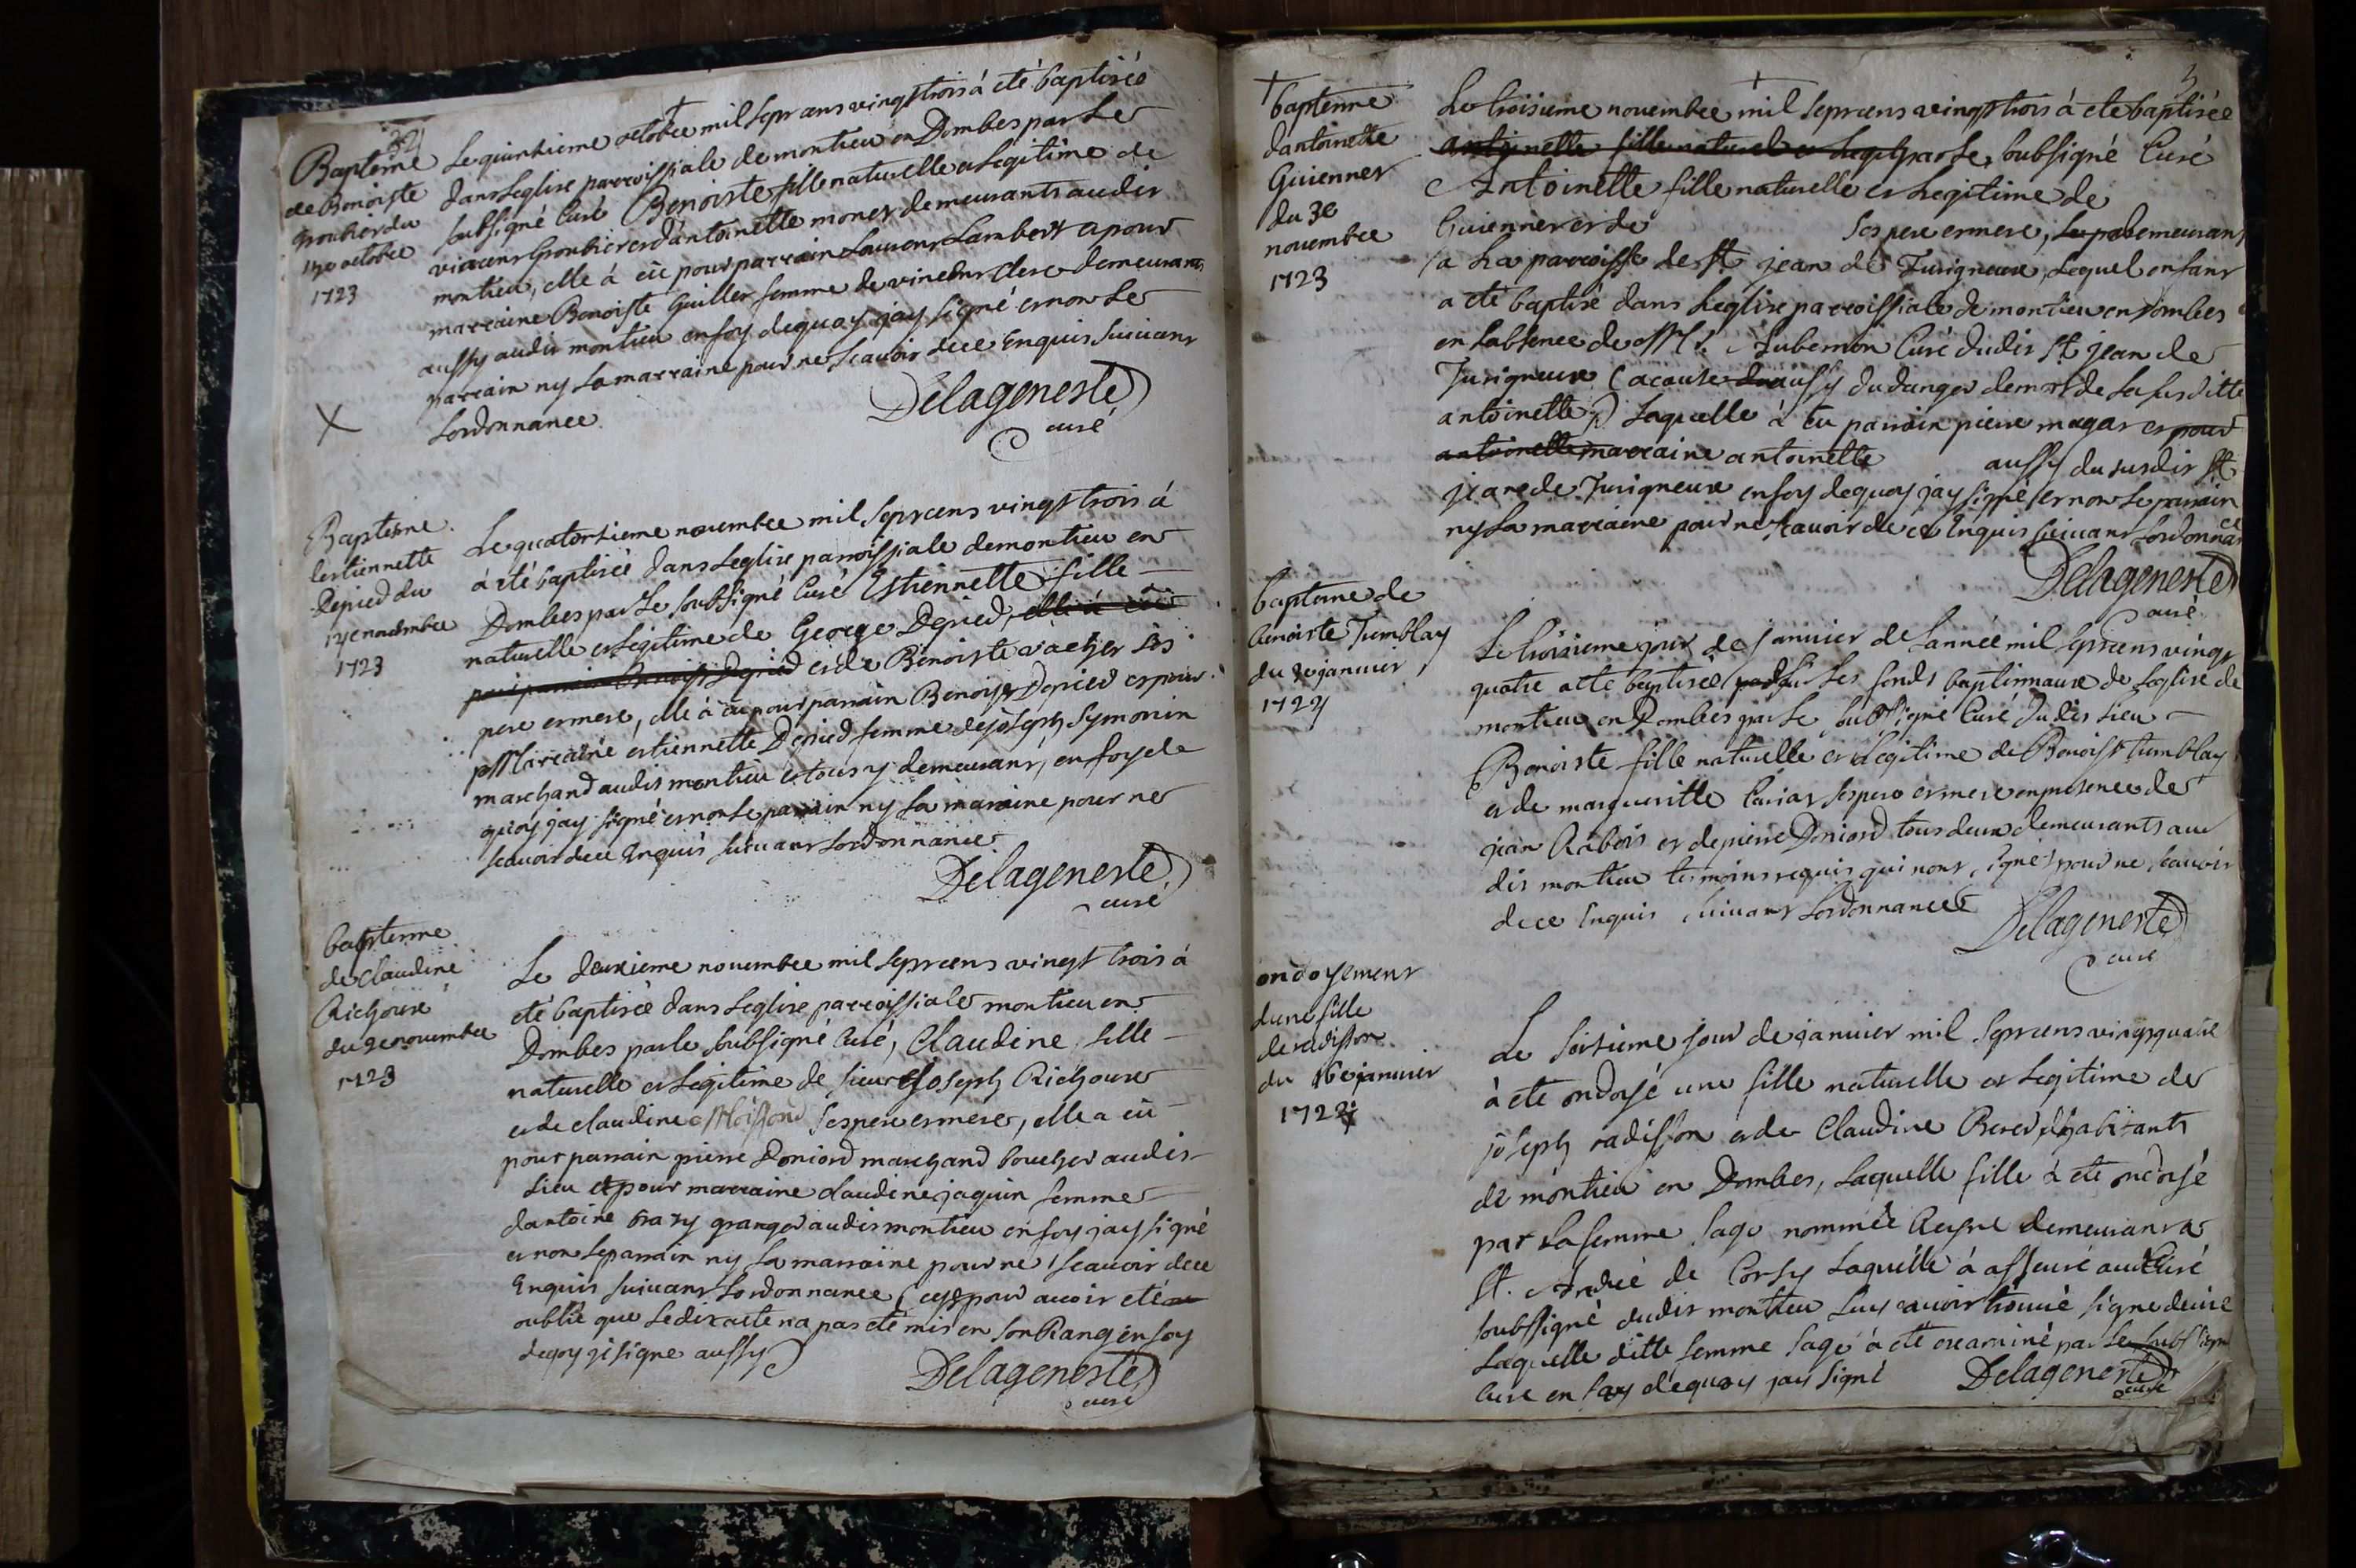 Baptême
de Benoiste
Groubier du
15e octobre
1723
Le quinzieme octobre mil sept cens vingt trois à eté baptisée
dans Leglise parroissiale de montieu en Dombes par Le
soubsigné Curé Benoiste fille naturelle et Legitime de
vincens Groubier et d'antoinette monet demeurants audit
montieu, elle à eü pour parrain Laurens Lambert et pour
marraine Benoiste Guillet femme de vincens clerc demeurants
aussy audit montieu en foy dequoy jay signé et non Le
parrain ny La marraine pour ne scavoir dece Enquis suivant
Lordonnance.
Delageneste
curé
Baptême
destiennette
Depied du
14e novembre
1723
Le quatorsieme novembre mil sept cens vingt trois à
à été baptisée dans Leglise parroissiale de montieu en
Dombes par Le soubsigné Curé Estiennette fille
naturelle et Legitime de George Depied, elle à eü
pour parrain Benoist Depied et de Benoiste vacher ses
pere et mere, elle à eü pour parrain Benoist Depied et pour
Marraine estiennette Depied femme de joseph Symonin
marchand audit montieu et tous y demeurant, en foy de
quoy jay signé et non Le parrain ny La marraine pour ne
scavoir dece Enquis suivant Lordonnance.
Delageneste
curé
baptême
de Claudine
Richoux
du 2e novembre
1723
Le deuxieme novembre mil sept cens vingt trois à
eté baptisée dans Leglise parroissiale montieu en
Dombes par le soubsigné Curé, Claudine fille
naturelle et Legitime de sieur joseph Richoux
et de claudine Moisson ses pere et mere, elle a eü
pour parrain pierre Doniord marchand boucher audit
Lieu et pour marraine claudine jaquin femme
dantoine granger audit montieu en foy jay signé
et non Le parrain ny La marraine pour ne scavoir dece
Enquis suivant Lordonnance (cest pour avoir eté
oublié que Ledit acte na pas eté mis en son Rang en foy
dequoy je signe aussy)
Delageneste
curé
3
baptême
dantoinette
Guiennet
du 3e
novembre
1723
Le troisieme novembre mil sept cens vingt trois à eté baptisée
antoinette fille naturel et Legit par Le soubsigné Curé
Antoinette fille naturelle et Legitime de
Guiennet et de ses pere et mere, demeurant
a La parroisse de St jean de Turigneux, Lequel enfant
a eté baptisé dans Leglise parroissiale de montieu en Dombes
en Labsence de Mr. Aubernon Curé dudit St jean de
Turigneux (acause aussy du danger de mort de La susditte
antoinette) Laquelle à eu parrain pierre magat et pour
antoinette marraine antoinette aussy du susdit St
jean de Turigneux en foy dequoy jay signé et non Le parrain
ny La marraine pour ne scavoir de ce Enquis suivant Lordonnace
Delageneste
curé
baptême de
benoiste Tumblay
du 3e janvier
1724
Le troisieme jour de janvier de Lannée mil sept cens vingt
quatre a eté baptisée sur Les fonds baptismaux de Leglise de
montieu en Dombes par Le soubsigné Curé dudit Lieu
Benoiste fille naturelle et Legitime de Benoist tumblay
et de margueritte Curiat ses pere et mere en presence de
jean Rabois et de pierre Doniord tous deux demeurants au
dit montieu temoins requis qui nont signé pour ne scavoir
de ce Enquis suivant Lordonnance
Delageneste
curé
ondoyement
dune fille
de radisson
du 16e janvier
1724
Le seisieme jour de janvier mil sept cens vingt quatre
à eté ondoyé une fille naturelle et Legitime de
joseph radisson et de Claudine habitants
de montieu en Dombes, Laquelle fille à eté ondoyé
par La femme sage nommée demeurant a
St. André de Corsy Laquelle à asseuré au Curé
soubsigné dudit montieu Luy avoir trouvé signe de vie
Laquelle ditte femme sage à eté examiné par Le soubsigné
Curé en foy dequoy jay signé Delageneste
curé